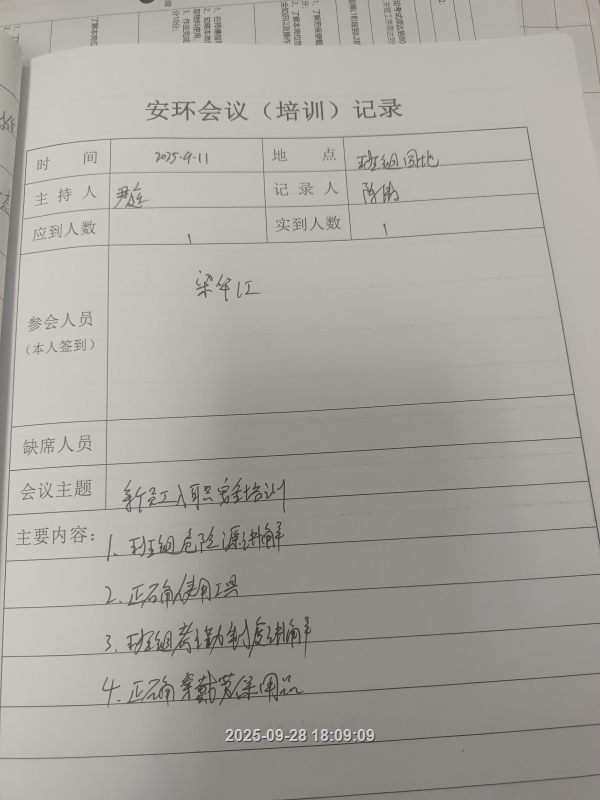 安环会议（培训）记录
时 间 2025-9-11 地 点 班组园地
主 持 人 尹庭 记 录 人 陈
应到人数 1 实到人数 1
梁华江
参会人员
（本人签到）
缺席人员
会议主题 新员工入职安全培训
主要内容：1. 班组危险源讲解
2. 正确使用工具
3. 班组考勤制度讲解
4. 正确穿戴劳保用品
2025-09-28 18:09:09